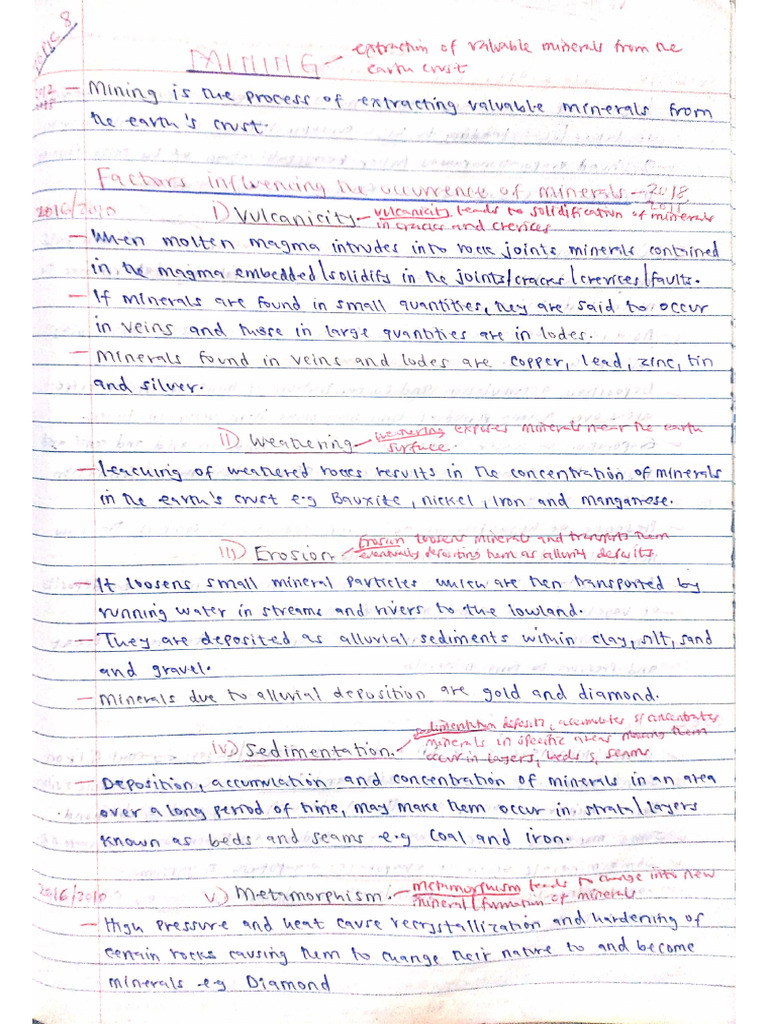 TOPIC 8
MINING - extraction of valuable minerals from the
earth crust
2012
- Mining is the process of extracting valuable minerals from
the earth's crust.
Factors influencing the occurrence of minerals - 2018
2011
2016/2010
i) Vulcanicity - vulcanicity leads to solidification of minerals
in cracks and crevices
- When molten magma intrudes into rock joints minerals contained
in the magma embedded/solidifs in the joints/cracks/crevices/faults.
- If minerals are found in small quantities, they are said to occur
in veins and those in large quantities are in lodes.
- Minerals found in veins and lodes are copper, lead, zinc, tin
and silver.
ii) Weathering - weathering exposes minerals near the earth
surface.
- Leaching of weathered rocks results in the concentration of minerals
in the earth's crust e.g Bauxite, nickel, iron and manganese.
iii) Erosion - Erosion loosens mineral and transports them
eventually depositing them as alluvial deposits.
- It loosens small mineral particles which are then transported by
running water in streams and rivers to the lowland.
- They are deposited as alluvial sediments within clay, silt, sand
and gravel.
- Minerals due to alluvial deposition are gold and diamond.
iv) Sedimentation. - Sedimentation deposits, accumulates & concentrates
minerals in specific areas making them
occur in layers, beds, seams
- Deposition, accumulation and concentration of minerals in an area
over a long period of time, may make them occur in strata/layers
known as beds and seams e.g Coal and iron.
2016/2010
v) Metamorphism. - Metamorphism leads to change into new
mineral/formation of minerals
- High pressure and heat cause recrystallization and hardening of
certain rocks causing them to change their nature to and become
minerals eg Diamond